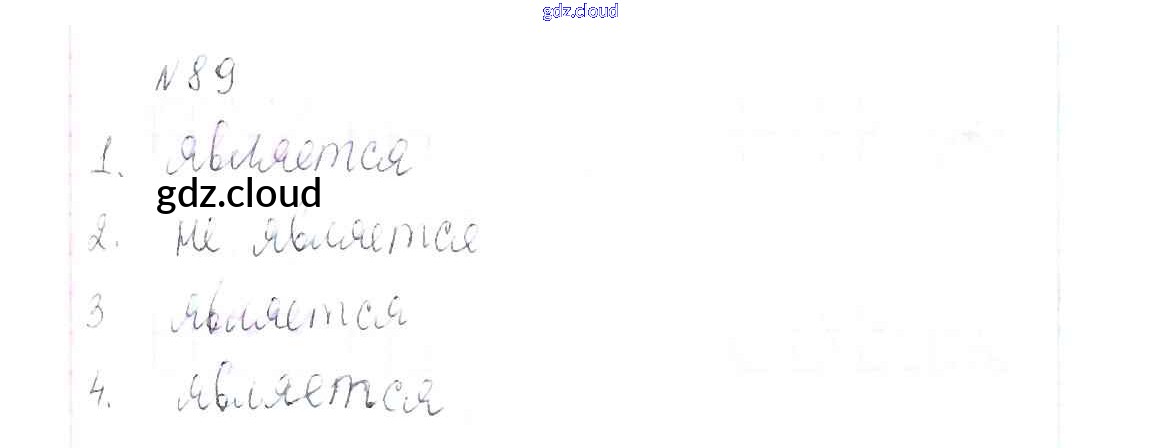 gdz.cloud
N 89
1. является
gdz.cloud
2. не является
3 является
4. является